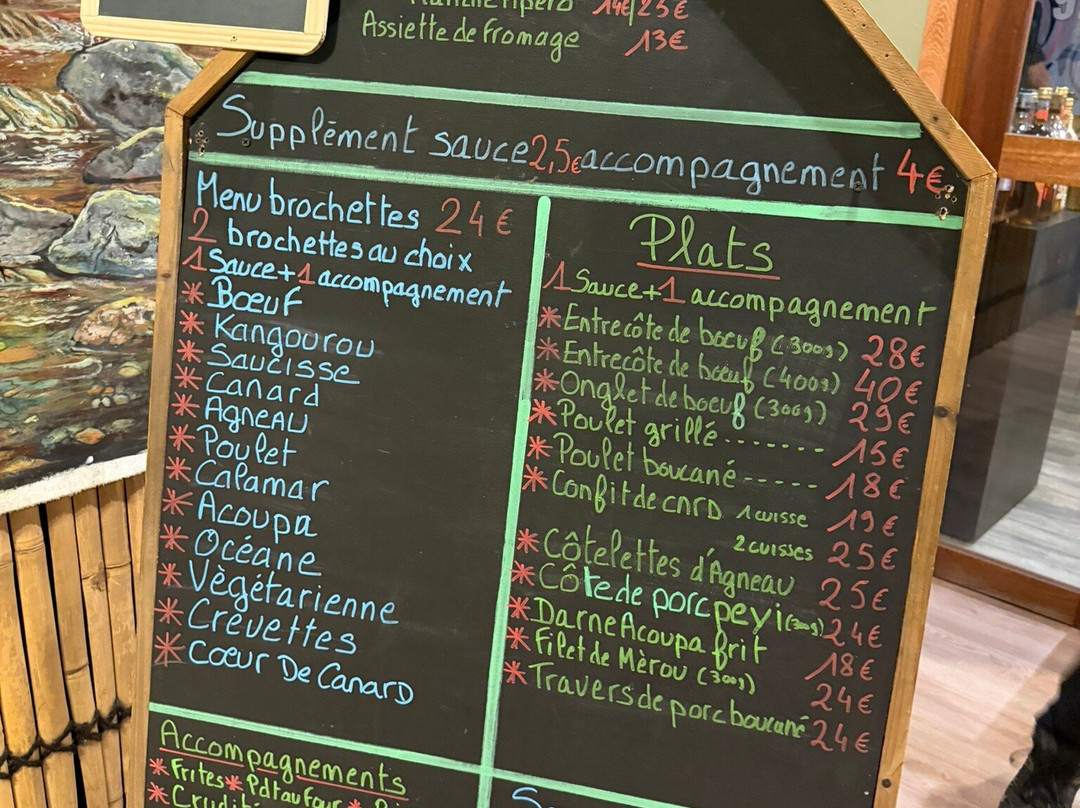 14€/23€
Assiette de Fromage 13€
Supplément sauce 2,5€ accompagnement 4€
Menu brochettes 24€
2 brochettes au choix
1 Sauce + 1 accompagnement
* Bœuf
* Kangourou
* Saucisse
* Canard
* Agneau
* Poulet
* Calamar
* Acoupa
* Océane
* Vègétarienne
* Crevettes
* cœur De Canard
Plats
1 Sauce + 1 accompagnement
* Entrecôte de boeuf (300g) 28€
* Entrecôte de bœuf (400g) 40€
* Onglet de boeuf (300g) 29€
* Poulet grillé ------ 15€
* Poulet boucané ----- 18€
* Confit de cnRD 1 cuisse 19€
2 cuisses 25€
* Côtelettes d'Agneau 25€
* Côte de porc peyi (300g) 24€
* Darne Acoupa frit 18€
* Filet de Mèrou (300g) 24€
* Travers de porc boucané 24€
Accompagnements
* Frites * Pdt au four *